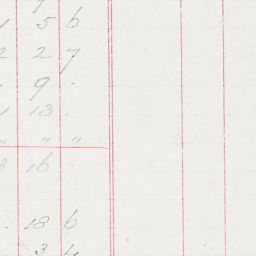 1 5 6
2 2 7
9 .
1 13 .
" " "
3 16 .
. 18 6
. 3 4